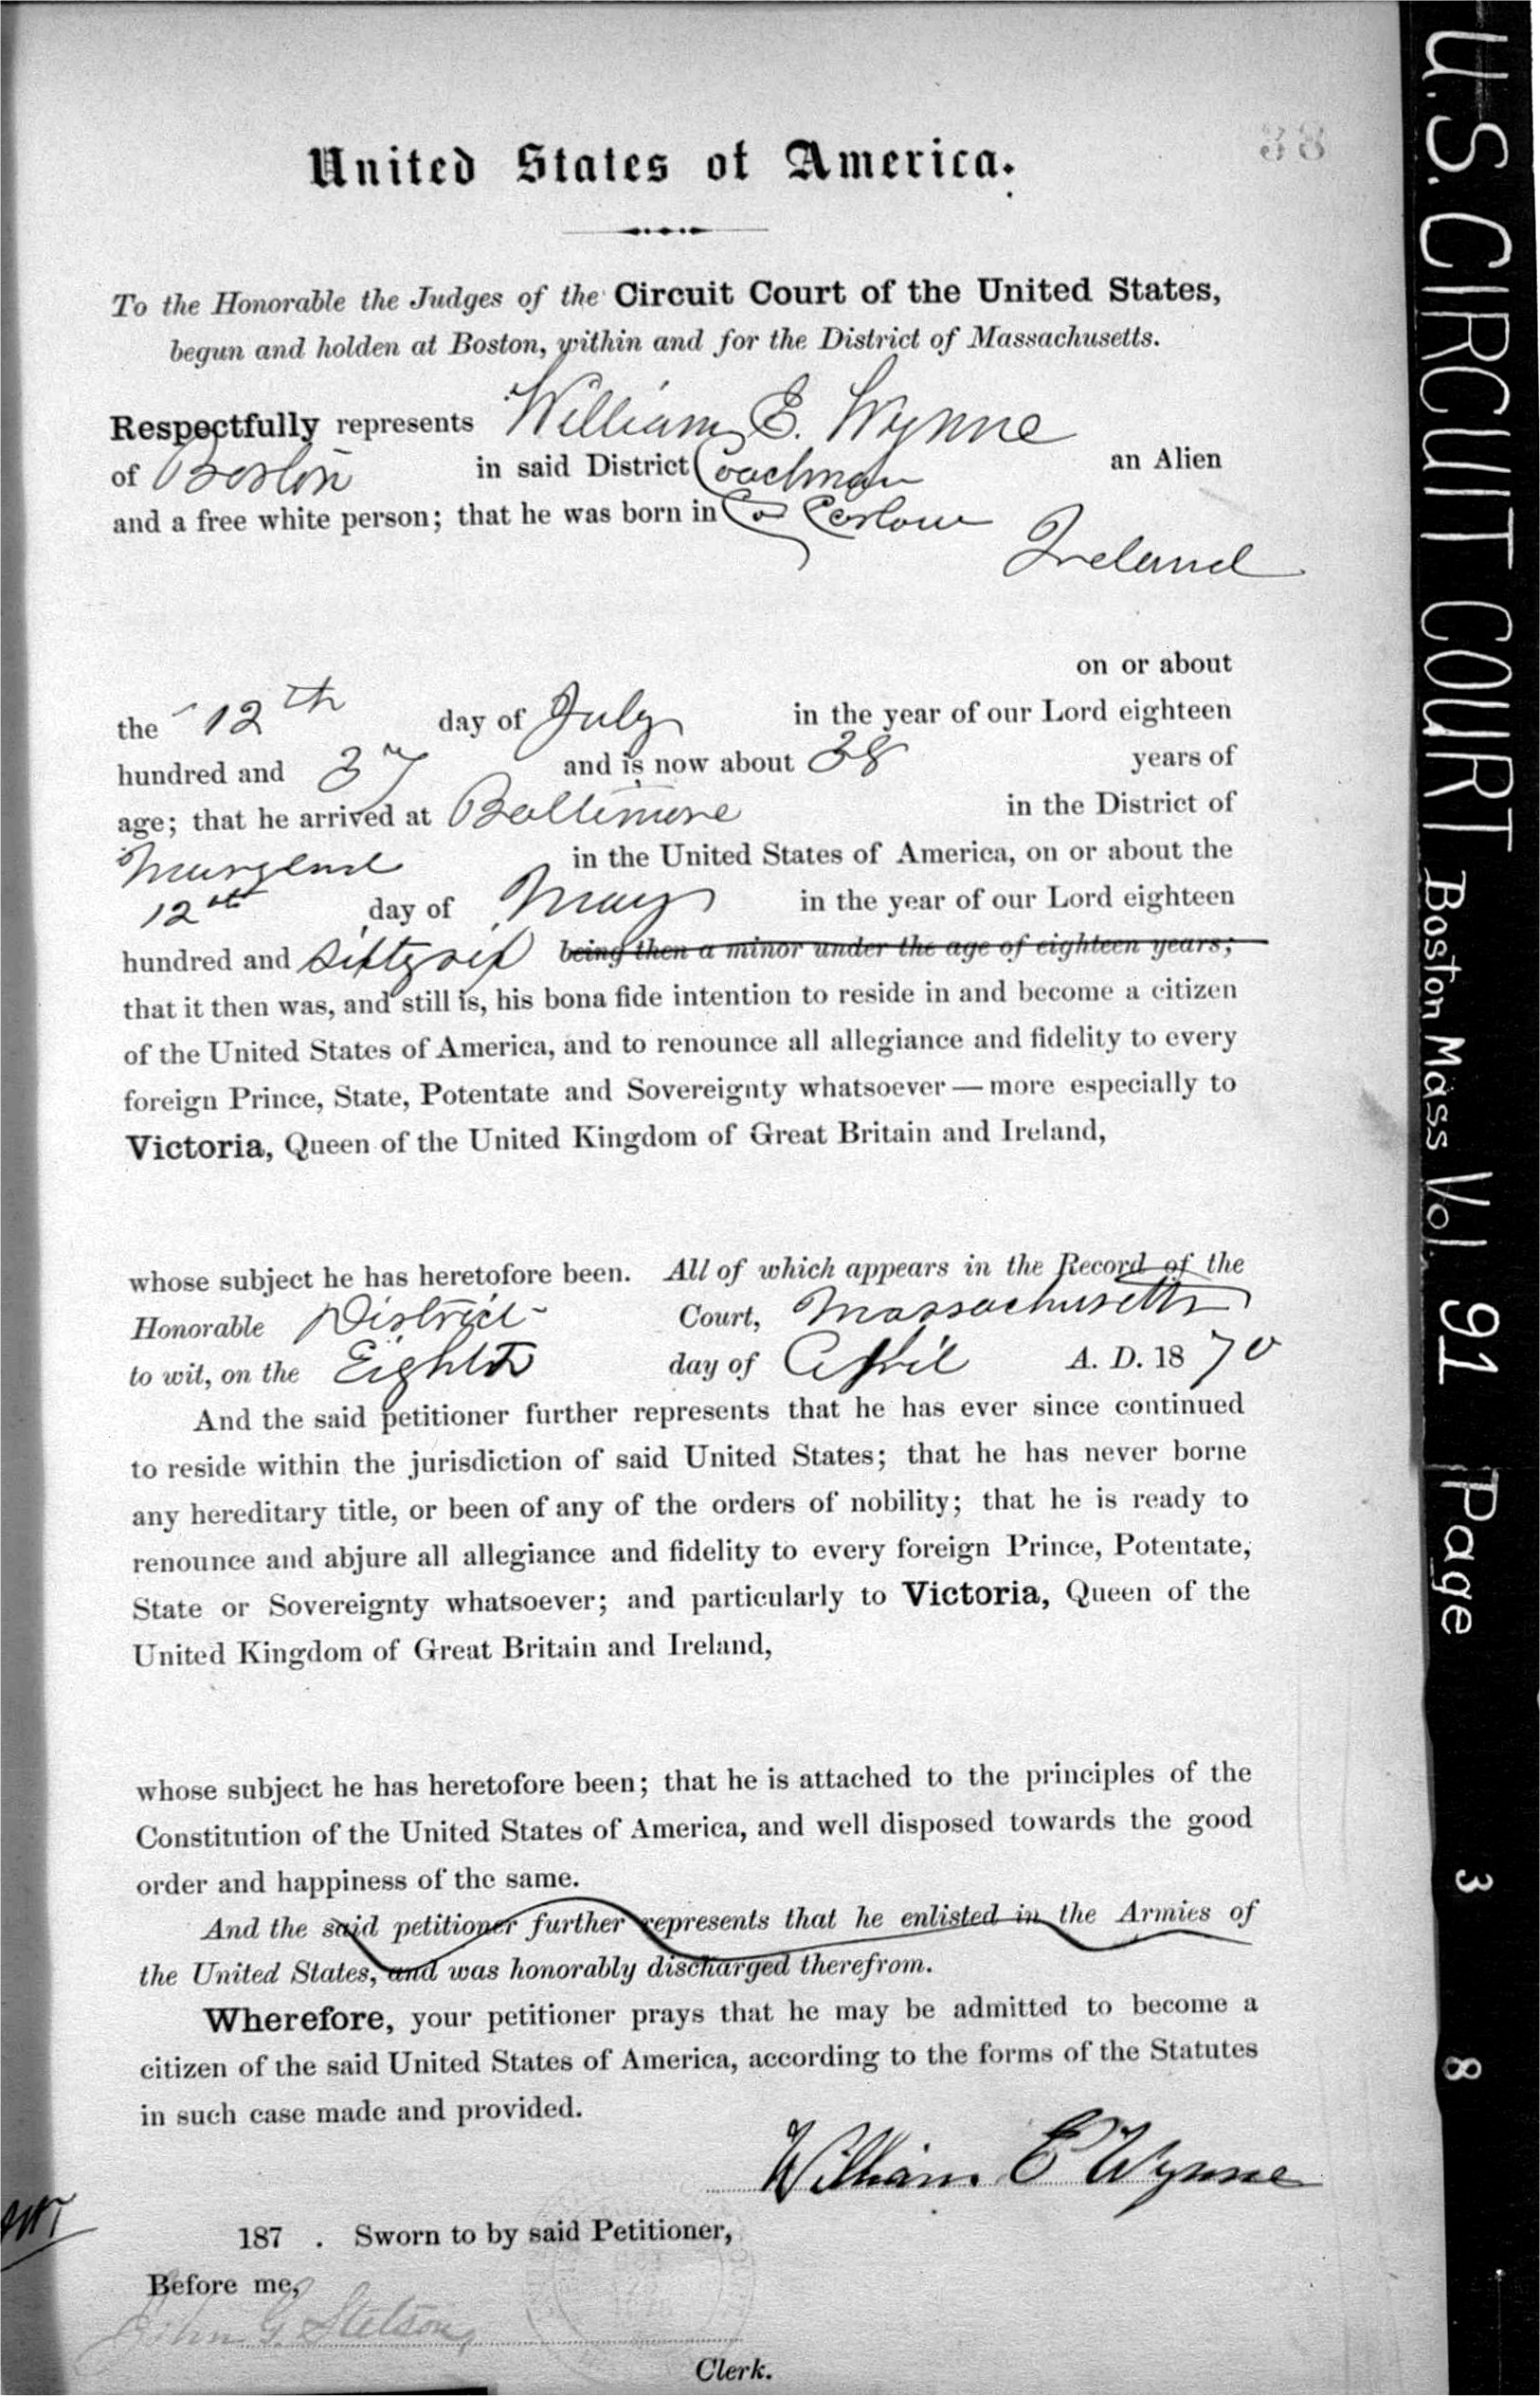 United States of America.
38
To the Honorable the Judges of the Circuit Court of the United States,
begun and holden at Boston, within and for the District of Massachusetts.
Respectfully represents William E. Wynne
of Boston in said District Coachman an Alien
and a free white person; that he was born in Co Carlow
Ireland
on or about
the 12th day of July in the year of our Lord eighteen
hundred and 37 and is now about 38 years of
age; that he arrived at Baltimore in the District of
Maryland in the United States of America, on or about the
12th day of May in the year of our Lord eighteen
hundred and being then a minor under the age of eighteen years;
that it then was, and still is, his bona fide intention to reside in and become a citizen
of the United States of America, and to renounce all allegiance and fidelity to every
foreign Prince, State, Potentate and Sovereignty whatsoever — more especially to
Victoria, Queen of the United Kingdom of Great Britain and Ireland,
whose subject he has heretofore been. All of which appears in the Record of the
Honorable District Court, Massachusetts
to wit, on the Eighth day of April A. D. 1870
And the said petitioner further represents that he has ever since continued
to reside within the jurisdiction of said United States; that he has never borne
any hereditary title, or been of any of the orders of nobility; that he is ready to
renounce and abjure all allegiance and fidelity to every foreign Prince, Potentate,
State or Sovereignty whatsoever; and particularly to Victoria, Queen of the
United Kingdom of Great Britain and Ireland,
whose subject he has heretofore been; that he is attached to the principles of the
Constitution of the United States of America, and well disposed towards the good
order and happiness of the same.
And the said petitioner further represents that he enlisted in the Armies of
the United States, and was honorably discharged therefrom.
Wherefore, your petitioner prays that he may be admitted to become a
citizen of the said United States of America, according to the forms of the Statutes
in such case made and provided.
William E Wynne
187 . Sworn to by said Petitioner,
Before me,
John G. Stetson,
Clerk.
U.S. CIRCUIT COURT Boston Mass Vol. 91 Page 38